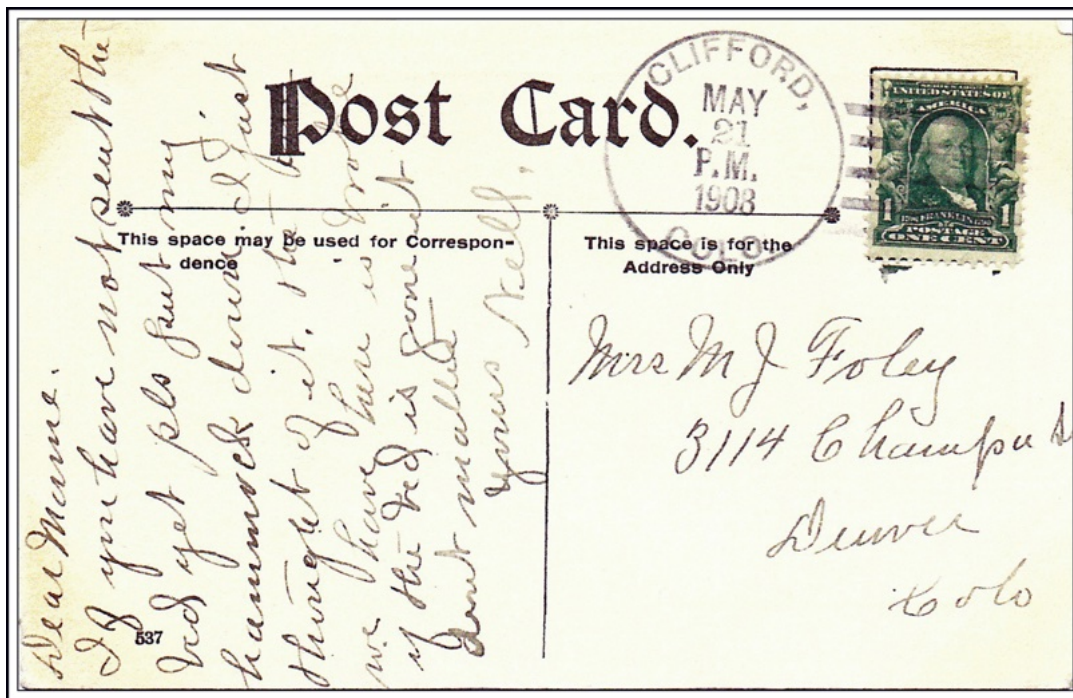 Post Card.
CLIFFORD,
MAY
21
P.M.
1908
COLO
UNITED STATES OF
AMERICA
1 FRANKLIN 1
POSTAGE
ONE CENT
This space may be used for Correspon-
dence
This space is for the
Address Only
Dear Mame.
If you have not sent the
bed yet pls put my
hammock in I just
thought of it, the
we have here is broke
if the bed is gone it
dont matter
Yours Nell,
Mrs M J Foley
3114 Champa St
Denver
Colo
537